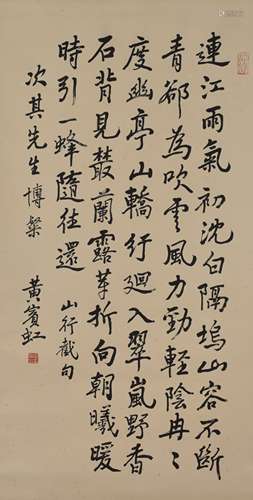 連江雨氣初沈白隔塢山容不斷
青郤為吹雲風力勁輕陰冉々
度幽亭山轎行迴入翠嵐野香
石背見叢蘭露芽折向朝曦暖
時引一蜂隨往還
山行截句
次其先生博粲
黃賓虹